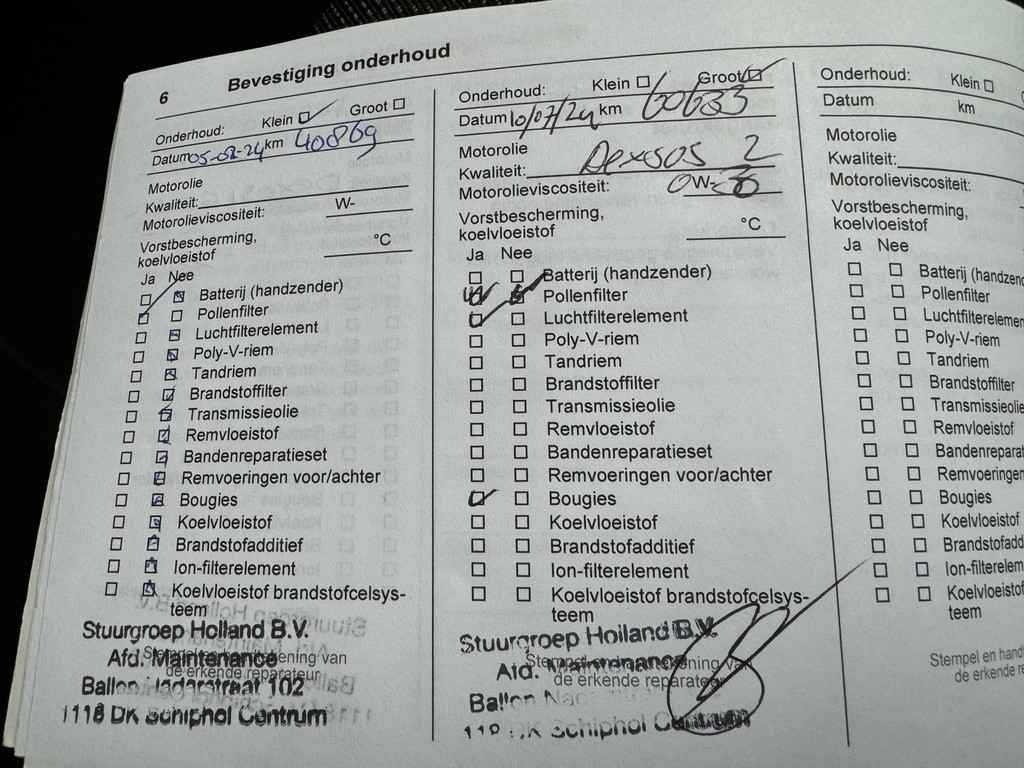 6 Bevestiging onderhoud
Onderhoud: Klein Groot
Datum 05-02-24 km 40869
Motorolie
Kwaliteit:
Motorolieviscositeit: W-
Vorstbescherming,
koelvloeistof °C
Ja Nee
Batterij (handzender)
Pollenfilter
Luchtfilterelement
Poly-V-riem
Tandriem
Brandstoffilter
Transmissieolie
Remvloeistof
Bandenreparatieset
Remvoeringen voor/achter
Bougies
Koelvloeistof
Brandstofadditief
Ion-filterelement
Koelvloeistof brandstofcelsys-
teem
Stuurgroep Holland B.V.
Afd. Maintenance
Stempel en van
de erkende reparateur
Ballon Nadarstraat 102
1118 DK Schiphol Centrum
Onderhoud: Klein Groot
Datum 10/07/24 km 60633
Motorolie
Kwaliteit: Dexsos 2
Motorolieviscositeit: 0W-
Vorstbescherming,
koelvloeistof °C
Ja Nee
Batterij (handzender)
Pollenfilter
Luchtfilterelement
Poly-V-riem
Tandriem
Brandstoffilter
Transmissieolie
Remvloeistof
Bandenreparatieset
Remvoeringen voor/achter
Bougies
Koelvloeistof
Brandstofadditief
Ion-filterelement
Koelvloeistof brandstofcelsys-
teem
Stuurgroep Holland B.V.
Afd. Maintenance
Stempel en van
de erkende reparateur
Ballon
DK Schiphol Centrum
Onderhoud: Klein
Datum km
Motorolie
Kwaliteit:
Motorolieviscositeit:
Vorstbescherming,
koelvloeistof
Ja Nee
Batterij (handzen
Pollenfilter
Luchtfilterelemen
Poly-V-riem
Tandriem
Brandstoffilter
Transmissieolie
Remvloeistof
Bandenreparat
Remvoeringen
Bougies
Koelvloeistof
Brandstofadd
Ion-filterelem
Koelvloeistof
teem
Stempel en hand
de erkende re